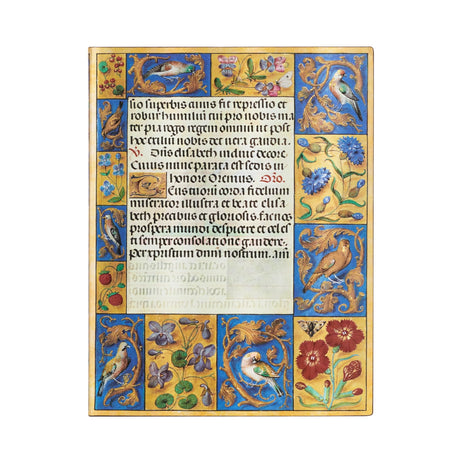 sio superbis cuius fit repressio et
robur humilui cui pro nobis ma
ter pia rogo regem omniu ut post
hoc exiliu nobis det uera gaudia.
V. Dns elisabeth induit decore
Cuius nunc parata est sedis in
honore Oremus. Oro.
Eus tuorū corda fidelium
miserator illustra et beate elisa
beth precibus et gloriosis facnos
prospera mundi despicere et celes
ti semper consolatione gaudere.
Per xpristum dnm nostrum. am